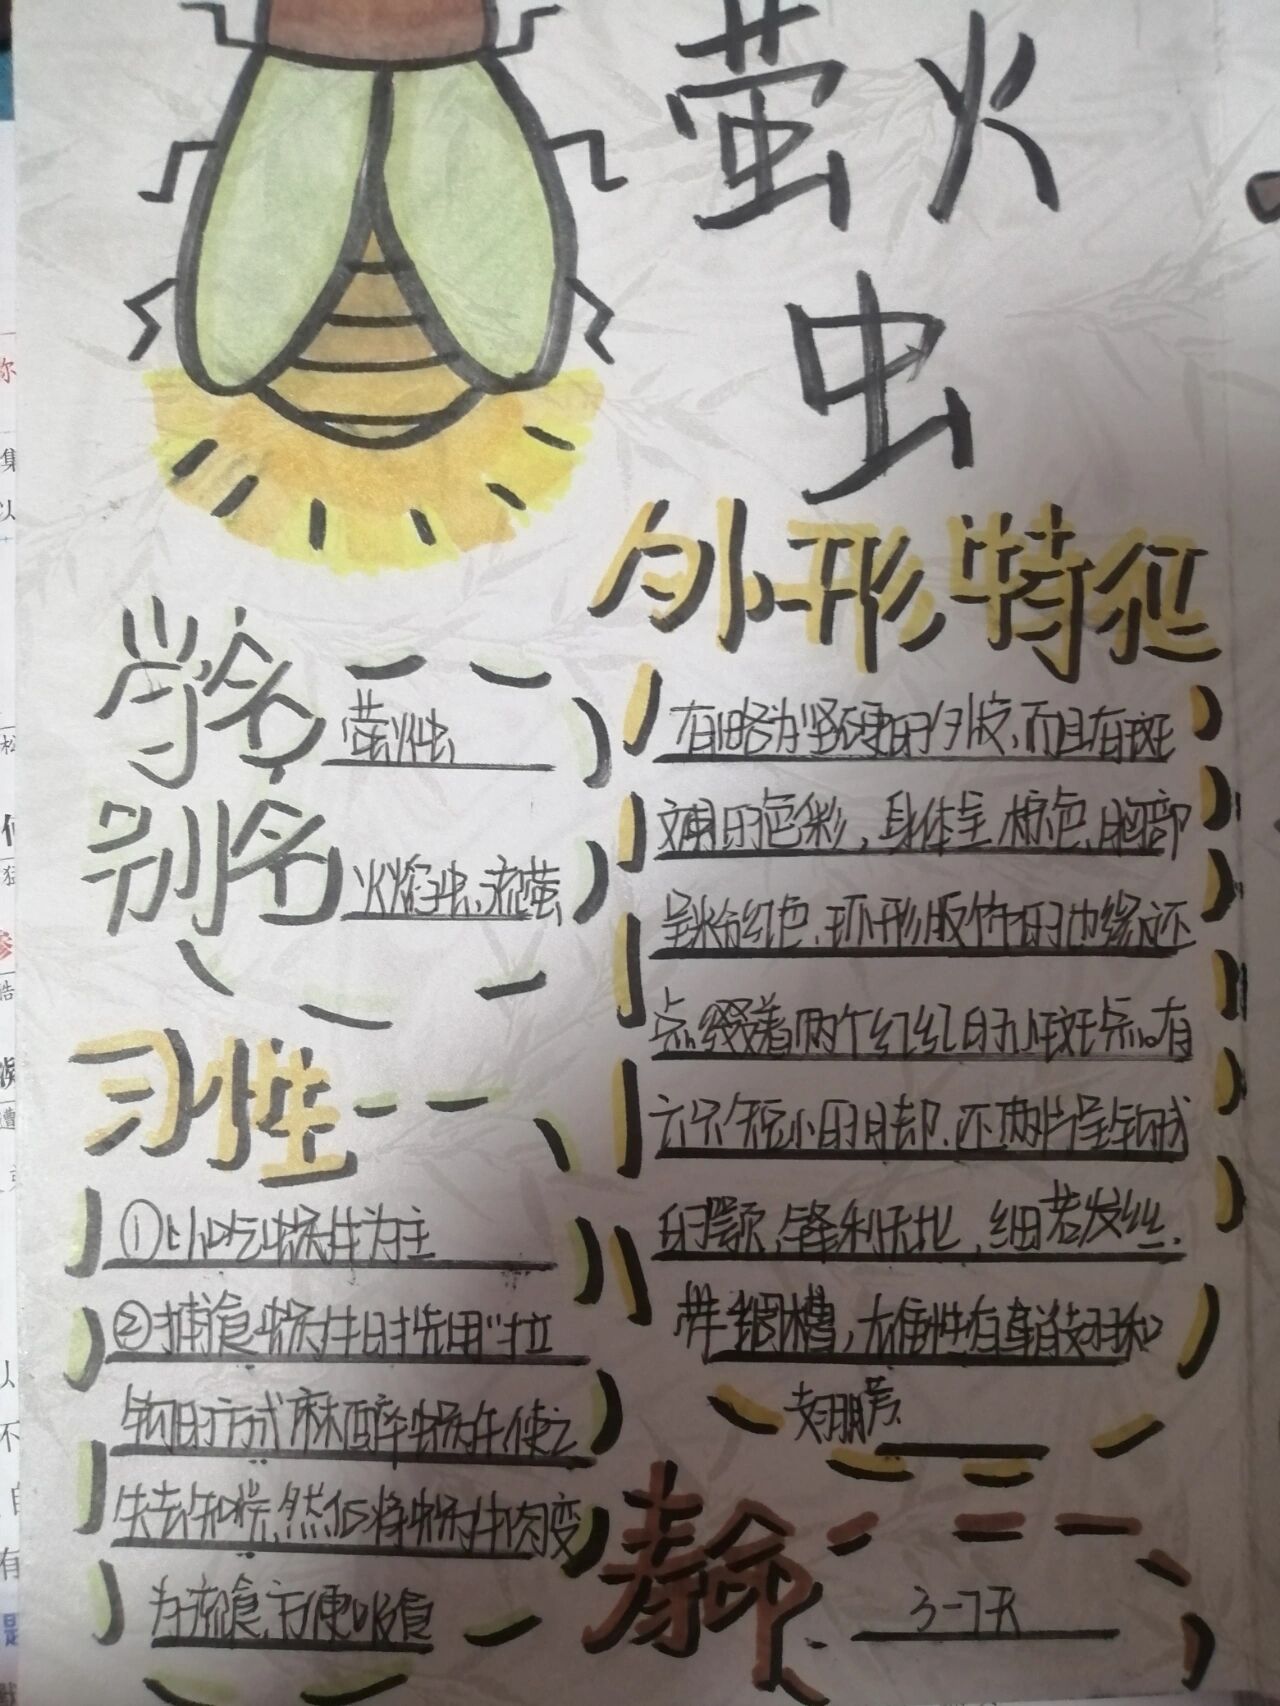 萤火
虫
学名
萤火虫
别名
火焰虫、流萤
习性
①以吃蜗牛为主
②捕食蜗牛时先用"拉
钩的方式麻醉蜗牛,使之
失去知觉,然后将蜗牛肉变
为流食,方便吸食
外形特征
有略为坚硬的外皮,而且有斑
斓的色彩,身体呈棕色,胸部
呈粉红色,环形版饰的边缘还
点缀着两个红红的小斑点。有
六只短小的脚,还两片呈钩
的颚,锋利无比,细若发丝.
带细槽,大雄性有鞘翅和
翅膀
寿命
3-7天